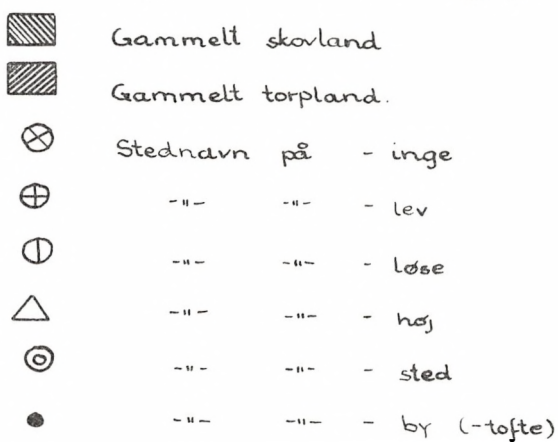 Gammelt skovland
Gammelt torpland.
Stednavn på - inge
-"- -"- - lev
-"- -"- - løse
-"- -"- - høj
-"- -"- - sted
-"- -"- - by (-tofte)